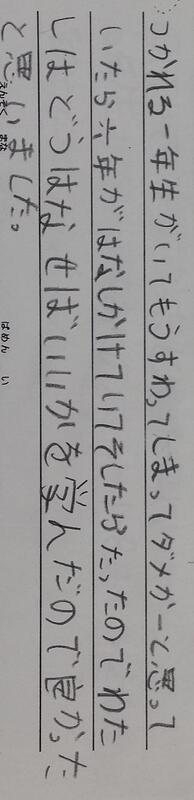 つかれる一年生がいてもうすわってしまってダメかーと思って
いたら六年がはなしかけていてそしたらたったのでわた
しはどうはなせばいいかを学んだので良かった
と思いました。
ばめん
い